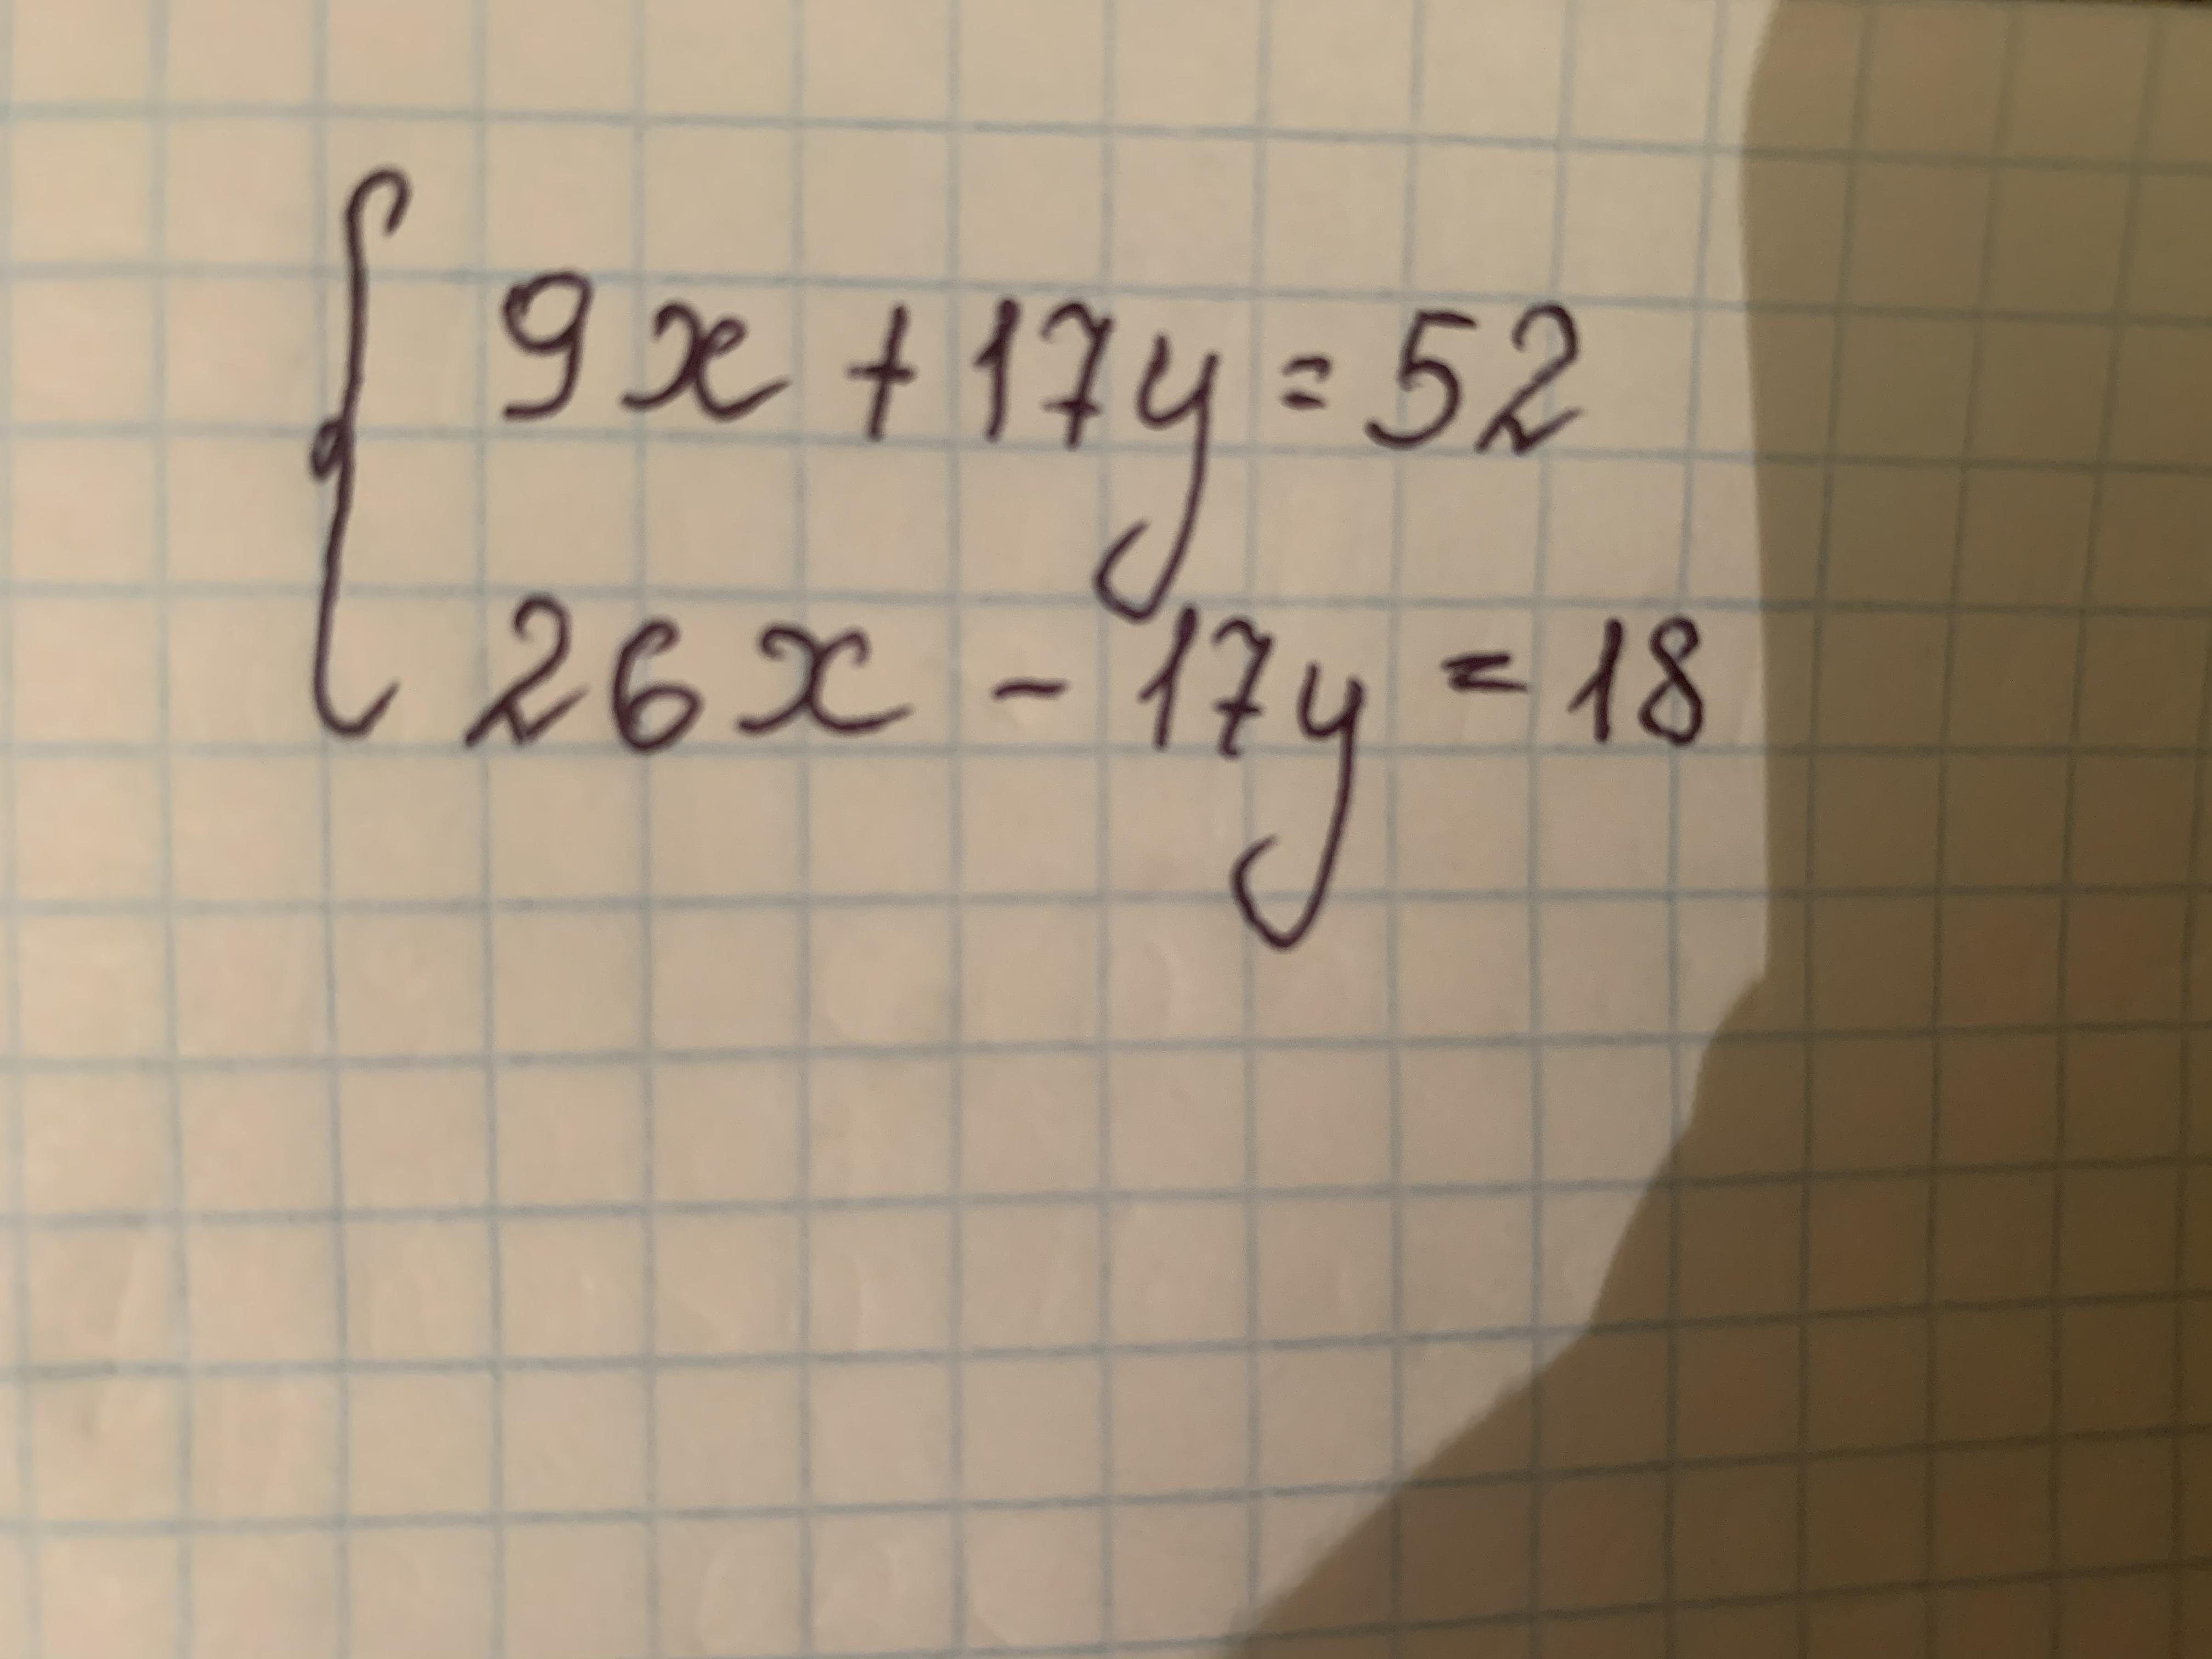 9x + 17y = 52
26x - 17y = 18